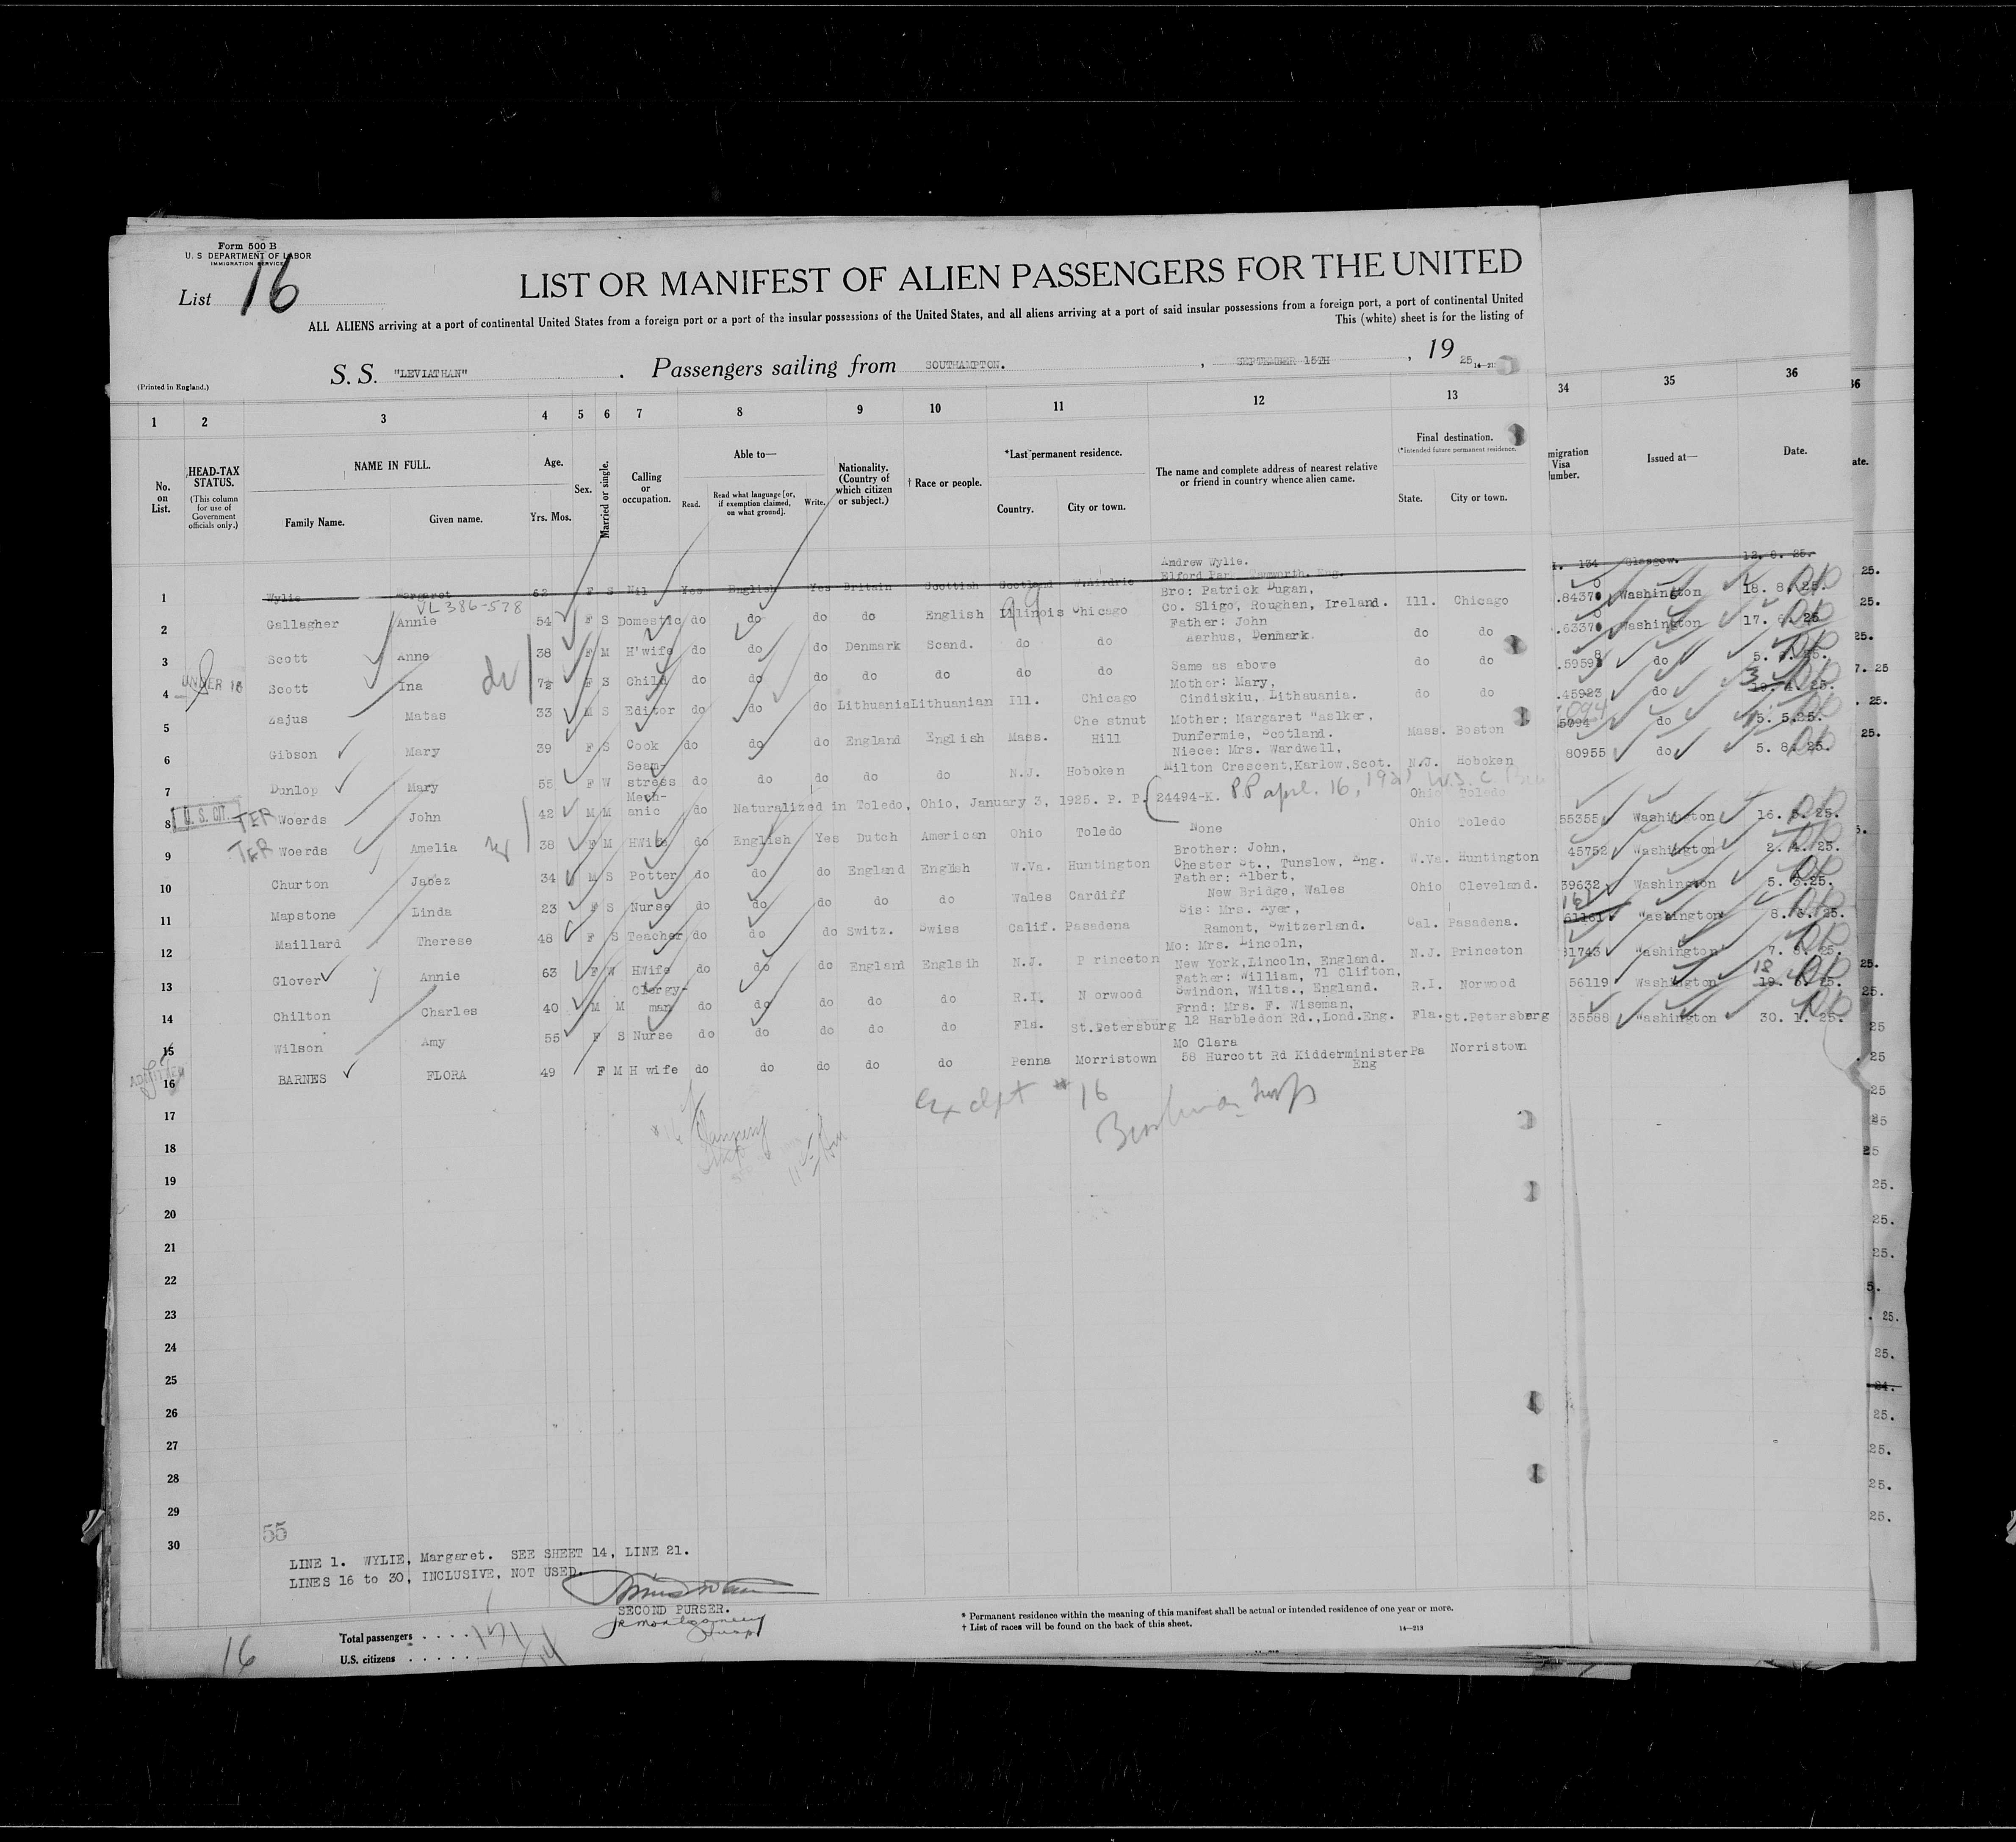 Form 500 B
U. S DEPARTMENT OF LABOR
IMMIGRATION SERVICE
List 16
LIST OR MANIFEST OF ALIEN PASSENGERS FOR THE UNITED
ALL ALIENS arriving at a port of continental United States from a foreign port or a port of the insular possessions of the United States, and all aliens arriving at a port of said insular possessions from a foreign port, a port of continental United
This (white) sheet is for the listing of
(Printed in England.)
S. S. "LEVIATHAN" . Passengers sailing from SOUTHAMPTON. , SEPTEMBER 15TH , 19 25
1 2 3 4 5 6 7 8 9 10 11 12 13 34 35 36
No. on List.
HEAD-TAX STATUS.
(This column for use of Government officials only.)
NAME IN FULL.
Family Name. Given name.
Age.
Yrs. Mos.
Sex.
Married or single.
Calling or occupation.
Able to—
Read. Read what language [or, if exemption claimed, on what ground]. Write.
Nationality. (Country of which citizen or subject.)
† Race or people.
*Last permanent residence.
Country. City or town.
The name and complete address of nearest relative or friend in country whence alien came.
Final destination.
(*Intended future permanent residence.
State. City or town.
migration Visa umber.
Issued at—
Date.
1 Wylie Margaret 62 F S Nil Yes English Yes Britain Scottish Scotland Andrew Wylie. 134 Glasgow. 12. 8. 25.
VL 386-578
2 Gallagher Annie 54 F S Domestic do do do do English Illinois Chicago Bro: Patrick Dugan, Co. Sligo, Roughan, Ireland. Ill. Chicago Washington 18. 8. 25.
3 Scott Anne 38 F M H'wife do do do Denmark Scand. do do Father: John Aarhus, Denmark. do do Washington
4 UNDER 16 Scott Ina 7½ F S Child do do do do do do do Same as above do do do
5 Zajus Matas 33 M S Editor do do do Lithuania Lithuanian Ill. Chicago Mother: Mary, Cindiskiu, Lithauania. do do 45923 do
6 Gibson Mary 39 F S Cook do do do England English Mass. Chestnut Hill Mother: Margaret Walker, Dunfermie, Scotland. Mass. Boston do 5. 5.25.
7 Dunlop Mary 55 F W Seam-stress do do do do do N.J. Hoboken Niece: Mrs. Wardwell, Milton Crescent,Karlow.Scot. N.J. Hoboken 80955 do 5. 8. 25.
8 U. S. CIT. TER Woerds John 42 M M Mech-anic do Naturalized in Toledo, Ohio, January 3, 1925. P. P. 24494-K. Ohio Toledo
9 TER Woerds Amelia 38 F M HWife do English Yes Dutch American Ohio Toledo None Ohio Toledo 55355 Washington
10 Churton Jabez 34 M S Potter do do do England English W.Va. Huntington Brother: John, Chester St., Tunslow, Eng. W.Va. Huntington 45752 Washington
11 Mapstone Linda 23 F S Nurse do do do do do Wales Cardiff Father: Albert, New Bridge, Wales Ohio Cleveland. 39632 Washington
12 Maillard Therese 48 F S Teacher do do do Switz. Swiss Calif. Pasadena Sis: Mrs. Ayer, Ramont, Switzerland. Cal. Pasadena. 61161 Washington
13 Glover Annie 63 F W HWife do do do England Englsih N.J. Princeton Mo: Mrs. Lincoln, New York,Lincoln, England. N.J. Princeton 31743 Washington
14 Chilton Charles 40 M M Clergy-man do do do do do R.I. Norwood Father: William, 71 Clifton, Swindon, Wilts., England. R.I. Norwood 56119 Washington
15 Wilson Amy 55 F S Nurse do do do do do Fla. St.Petersburg Frnd: Mrs. F. Wiseman, 12 Harbledon Rd.,Lond.Eng. Fla. St.Petersberg 35588 Washington 30. 1. 25.
16 ADMITTED BARNES FLORA 49 F M H wife do do do do do Penna Morristown Mo Clara 58 Hurcott Rd Kidderminister Eng Pa Norristown
Except #16
17
18
19
20
21
22
23
24
25
26
27
28
29
30
55
LINE 1. WYLIE, Margaret. SEE SHEET 14, LINE 21.
LINES 16 to 30, INCLUSIVE, NOT USED.
SECOND PURSER.
Total passengers
U.S. citizens
16
* Permanent residence within the meaning of this manifest shall be actual or intended residence of one year or more.
† List of races will be found on the back of this sheet.
14—213